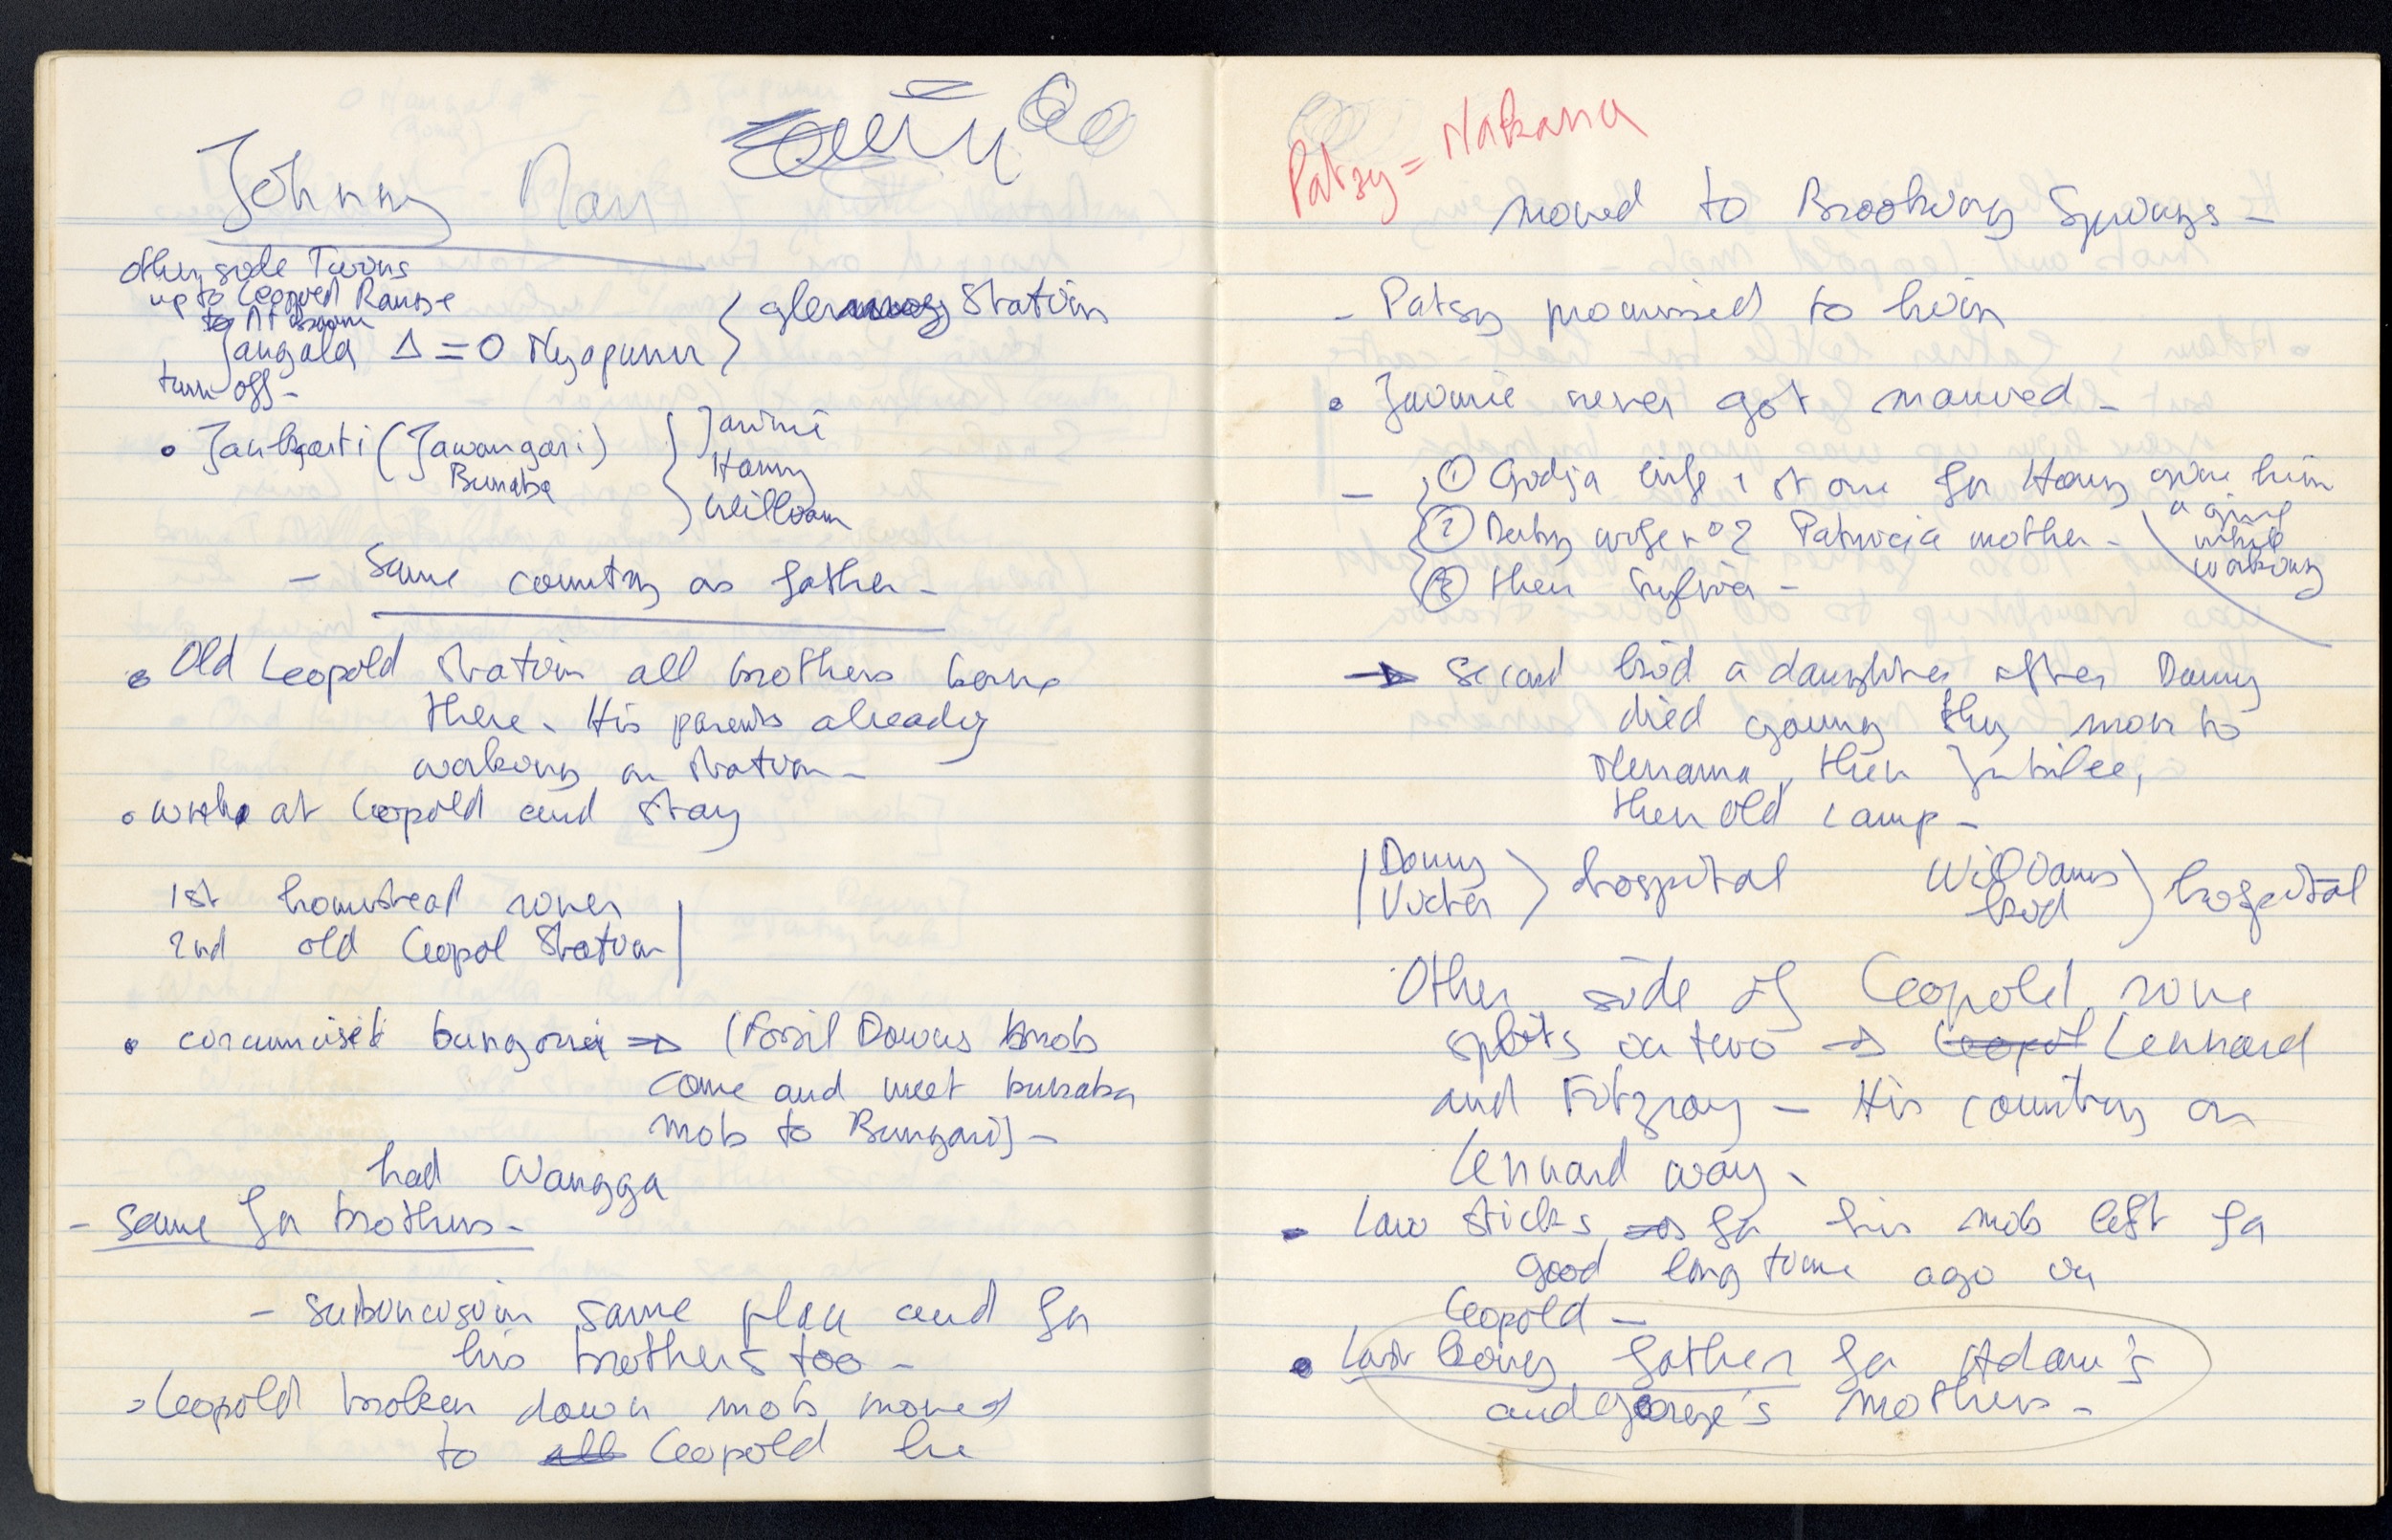 Johnny
other side Twins
up to Leopold Range
Jangala Δ = O Nyapurru } Station
turn off -
• Jankarti (Jawangari) { Jarimi
Bunaba Harry
William
- Same country as father -
• Old Leopold Station all brothers borne
there. His parents already
working on station -
• work at Leopold and stay
1st homestead river
2nd old Leopol Station
• circumcised → (Fossil Downs mob
come and meet bunaba
mob to Bungari) -
had Wangga
- Same for brothers -
- subincision same place and for
his brothers too -
Leopold broken down mob moved
to all Leopold he
Patsy =
moved to Brooking Springs -
- Patsy promised to him
• never got married -
- ① wife 1st one for give him
a girl
while
working
② wife n°2 Patricia mother -
③ then Sylvia -
→ second kid a daughter after Danny
died young they mov to
then Jubilee,
then old camp -
Danny
Victor } hospital Williams
kid } hospital
Other side of Leopold river
splits in two → Leopol Lennard
and Fitzroy - His country on
Lennard way.
- Law sticks → for his mob left for
good long time ago in
Leopold -
• father for Adam's
and george's mothers -